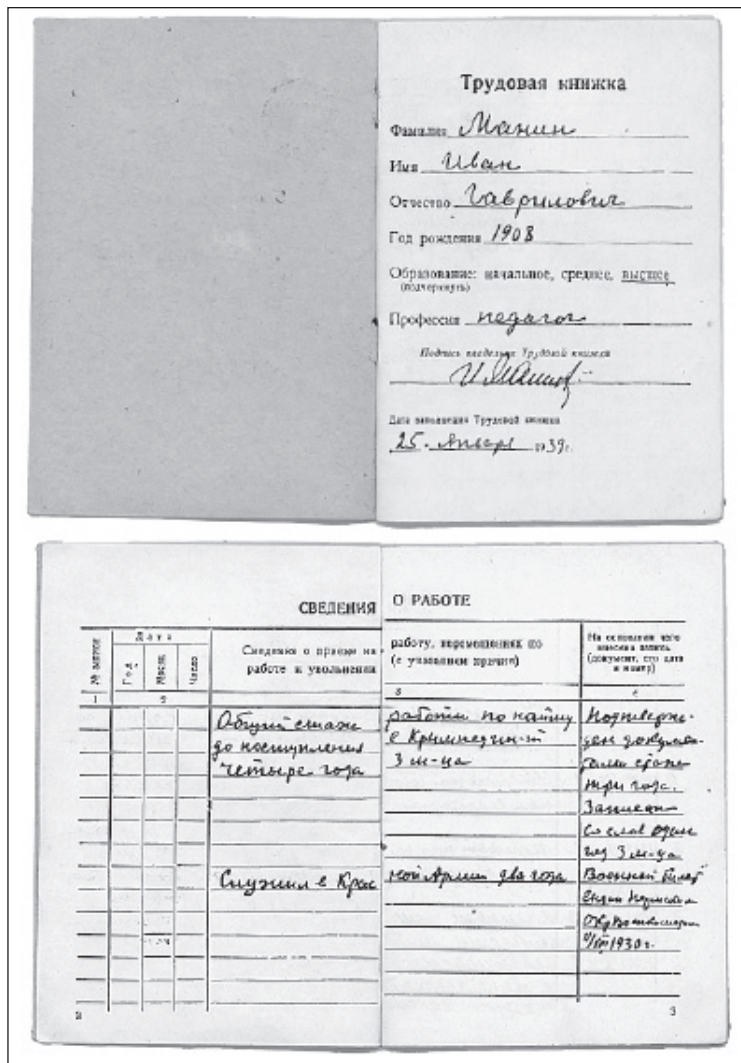 Трудовая книжка
Фамилия Манин
Имя Иван
Отчество Гаврилович
Год рождения 1908
Образование: начальное, среднее, высшее
(подчеркнуть)
Профессия педагог
Подпись владельца Трудовой книжки
Дата заполнения Трудовой книжки
25. января 1939г.
СВЕДЕНИЯ О РАБОТЕ
№ записи
Дата
Год
Месяц
Число
Сведения о приеме на работу, перемещениях по
работе и увольнении (с указанием причин)
На основании чего
внесена запись
(документ, его дата
и номер)
1 2 3 4
Общий стаж работы по найму
до поступления в Крымпедин-т
четыре года 3 м-ца
Подтверж-
ден докумен-
тами стаж
три года.
Записан
со слов один
год 3 м-ца
Служил в Красной Армии два года
Военный билет
1930г.
2 3